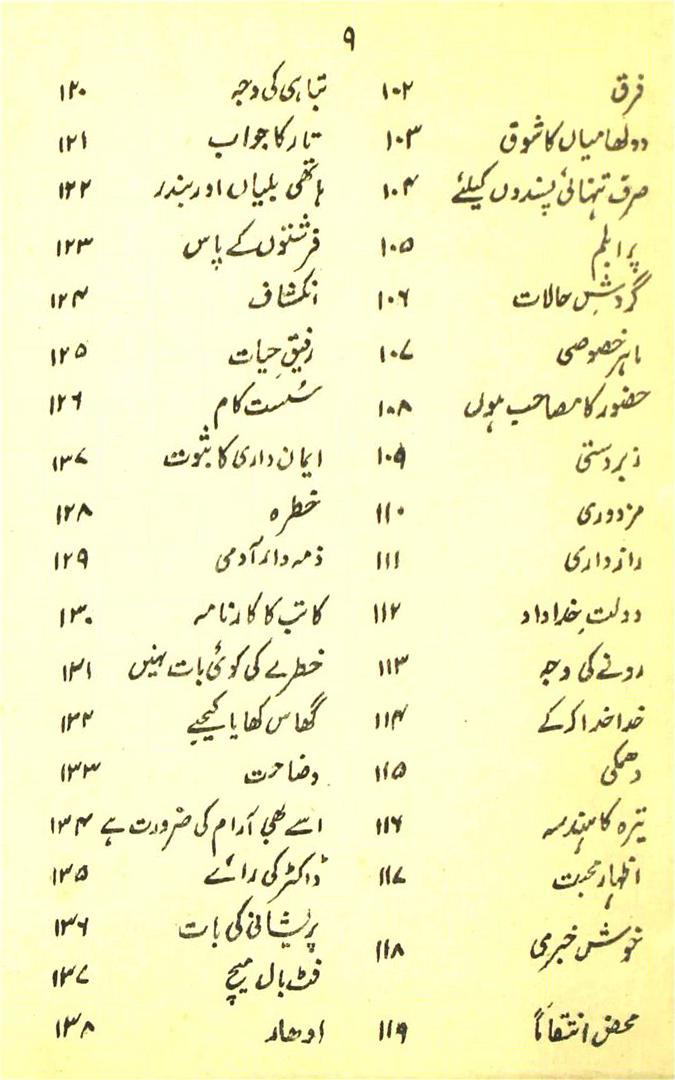 ۹
فرق ۱۰۲
دولھا میاں کا شوق ۱۰۳
صرف تنہائی پسندوں کیلئے ۱۰۴
پرابلم ۱۰۵
گردشِ حالات ۱۰۶
ماہر خصوصی ۱۰۷
حضور کا مصاحب ہوں ۱۰۸
زبردستی ۱۰۹
مزدوری ۱۱۰
رازداری ۱۱۱
دولتِ خداداد ۱۱۲
رونے کی وجہ ۱۱۳
خدا خدا کرکے ۱۱۴
دھمکی ۱۱۵
تیرہ کا ہندسہ ۱۱۶
اظہار محبت ۱۱۷
خوش خبری ۱۱۸
محض انتقاماً ۱۱۹
تباہی کی وجہ ۱۲۰
تار کا جواب ۱۲۱
ہاتھی بلیاں اور بندر ۱۲۲
فرشتوں کے پاس ۱۲۳
انکشاف ۱۲۴
رفیقِ حیات ۱۲۵
سُست کام ۱۲۶
ایمان داری کا ثبوت ۱۳۷
خطرہ ۱۲۸
ذمہ دار آدمی ۱۲۹
کاتب کا کارنامہ ۱۳۰
خطرے کی کوئی بات نہیں ۱۳۱
گھاس کھایا کیجیے ۱۳۲
وضاحت ۱۳۳
اسے بھی آرام کی ضرورت ہے ۱۳۴
ڈاکٹر کی رائے ۱۳۵
پریشانی کی بات ۱۳۶
فٹ بال میچ ۱۳۷
ادھار ۱۳۸